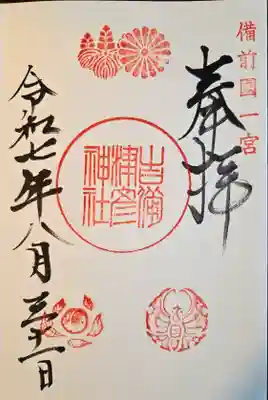 備前國一宮
奉拝
吉備津彦神社
令和七年八月三十一日